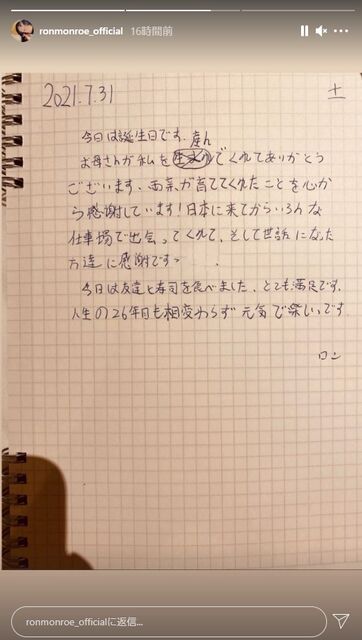 ronmonroe_official 16時間前
2021.7.31 土
今日は誕生日です. 産ん
お母さんが私を でくれてありがとう
ございます、両親が育ててくれたことを心か
ら感謝しています！日本に来てからいろんな
仕事場で出会ってくれて、そして世話になった
方達に感謝です
今日は友達と寿司を食べました、とても満足です.
人生の26年目も相変わらず元気で楽しいです
ロン
ronmonroe_officialに返信...